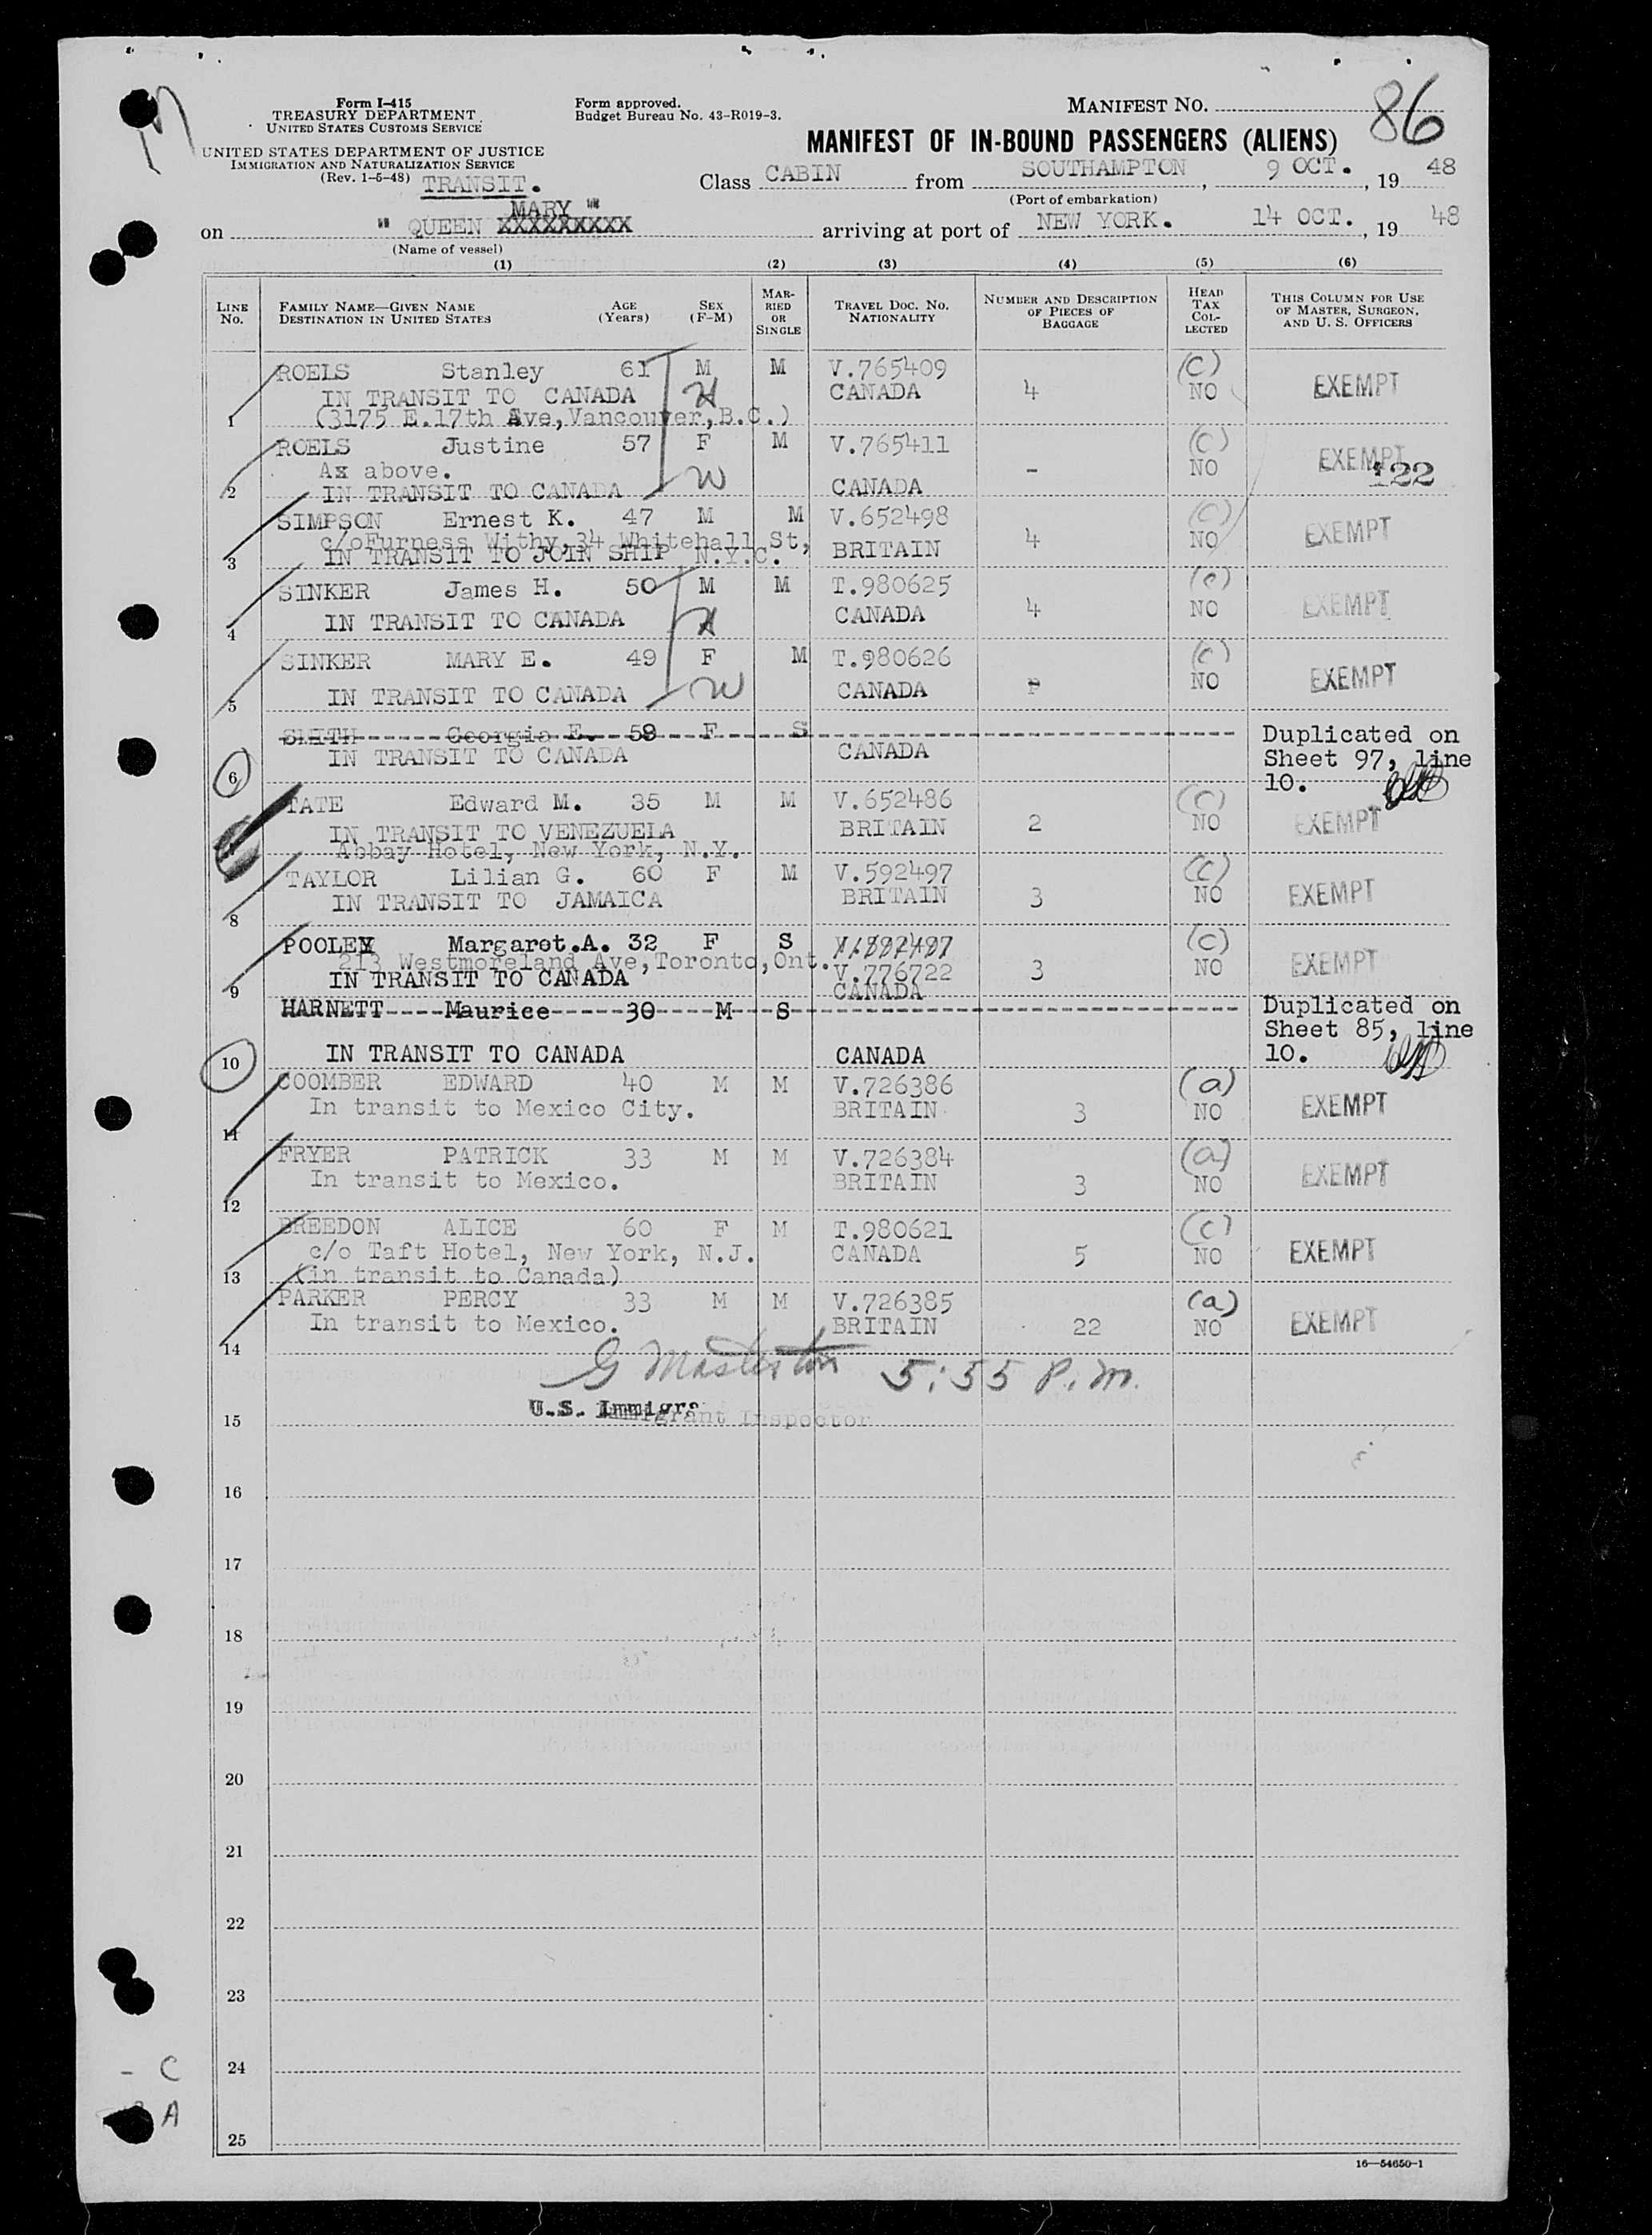 Form I-415
TREASURY DEPARTMENT
UNITED STATES CUSTOMS SERVICE
Form approved.
Budget Bureau No. 43-R019-3.
MANIFEST NO. 86
UNITED STATES DEPARTMENT OF JUSTICE
IMMIGRATION AND NATURALIZATION SERVICE
(Rev. 1-5-48) TRANSIT.
MANIFEST OF IN-BOUND PASSENGERS (ALIENS)
Class CABIN from SOUTHAMPTON, 9 OCT., 19 48
(Port of embarkation)
MARY "
on " QUEEN XXXXXXXXX arriving at port of NEW YORK. 14 OCT., 19 48
(Name of vessel)
(1) (2) (3) (4) (5) (6)
LINE NO. FAMILY NAME—GIVEN NAME DESTINATION IN UNITED STATES AGE (Years) SEX (F-M) MARRIED OR SINGLE TRAVEL DOC. NO. NATIONALITY NUMBER AND DESCRIPTION OF PIECES OF BAGGAGE HEAD TAX COLLECTED THIS COLUMN FOR USE OF MASTER, SURGEON, AND U. S. OFFICERS
ROELS Stanley 61 M M V.765409 (C)
IN TRANSIT TO CANADA H CANADA 4 NO EXEMPT
1 (3175 E.17th Ave,Vancouver,B.C.)
ROELS Justine 57 F M V.765411 (C)
As above. - NO EXEMPT
122
2 IN TRANSIT TO CANADA W CANADA
SIMPSON Ernest K. 47 M M V.652498 (C)
c/oFurness Withy,34 Whitehall St, 4 NO EXEMPT
3 IN TRANSIT TO JOIN SHIP N.Y.C. BRITAIN
SINKER James H. 50 M M T.980625 (c)
4 IN TRANSIT TO CANADA H CANADA 4 NO EXEMPT
SINKER MARY E. 49 F M T.980626 (c)
5 IN TRANSIT TO CANADA W CANADA NO EXEMPT
SMITH Georgia E. 59 F S Duplicated on
6 IN TRANSIT TO CANADA CANADA Sheet 97, line
10.
TATE Edward M. 35 M M V.652486 (C)
IN TRANSIT TO VENEZUELA BRITAIN 2 NO EXEMPT
Abbay Hotel, New York, N.Y.
TAYLOR Lilian G. 60 F M V.592497 (C)
8 IN TRANSIT TO JAMAICA BRITAIN 3 NO EXEMPT
POOLEY Margaret.A. 32 F S V.592497 (C)
213 Westmoreland Ave,Toronto,Ont. V.776722 3 NO EXEMPT
9 IN TRANSIT TO CANADA CANADA
HARNETT Maurice 30 M S Duplicated on
Sheet 85, line
10 IN TRANSIT TO CANADA CANADA 10.
COOMBER EDWARD 40 M M V.726386 (a)
11 In transit to Mexico City. BRITAIN 3 NO EXEMPT
FRYER PATRICK 33 M M V.726384 (a)
12 In transit to Mexico. BRITAIN 3 NO EXEMPT
BREEDON ALICE 60 F M T.980621 (C)
c/o Taft Hotel, New York, N.J. CANADA 5 NO EXEMPT
13 (in transit to Canada)
PARKER PERCY 33 M M V.726385 (a)
14 In transit to Mexico. BRITAIN 22 NO EXEMPT
G Masterton 5:55 P.m.
U.S. Immigrant Inspector
15
16
17
18
19
20
21
22
23
- C 24
A
25
16—54650-1